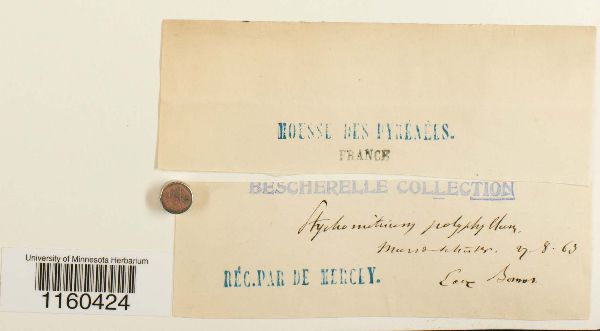 MOUSSE DES PYRÉNÉES.
FRANCE
BESCHERELLE COLLECTION
Ptychomitrium polyphyllum.
8. 63
RÉC. PAR DE MERCEY.
University of Minnesota Herbarium
1160424